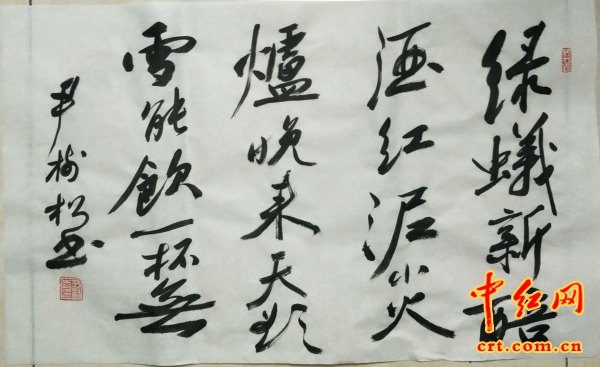 绿蟻新醅
酒红泥小火
爐晚来天欲
雪能飲一杯無
尹树松书
中红网
crt.com.cn